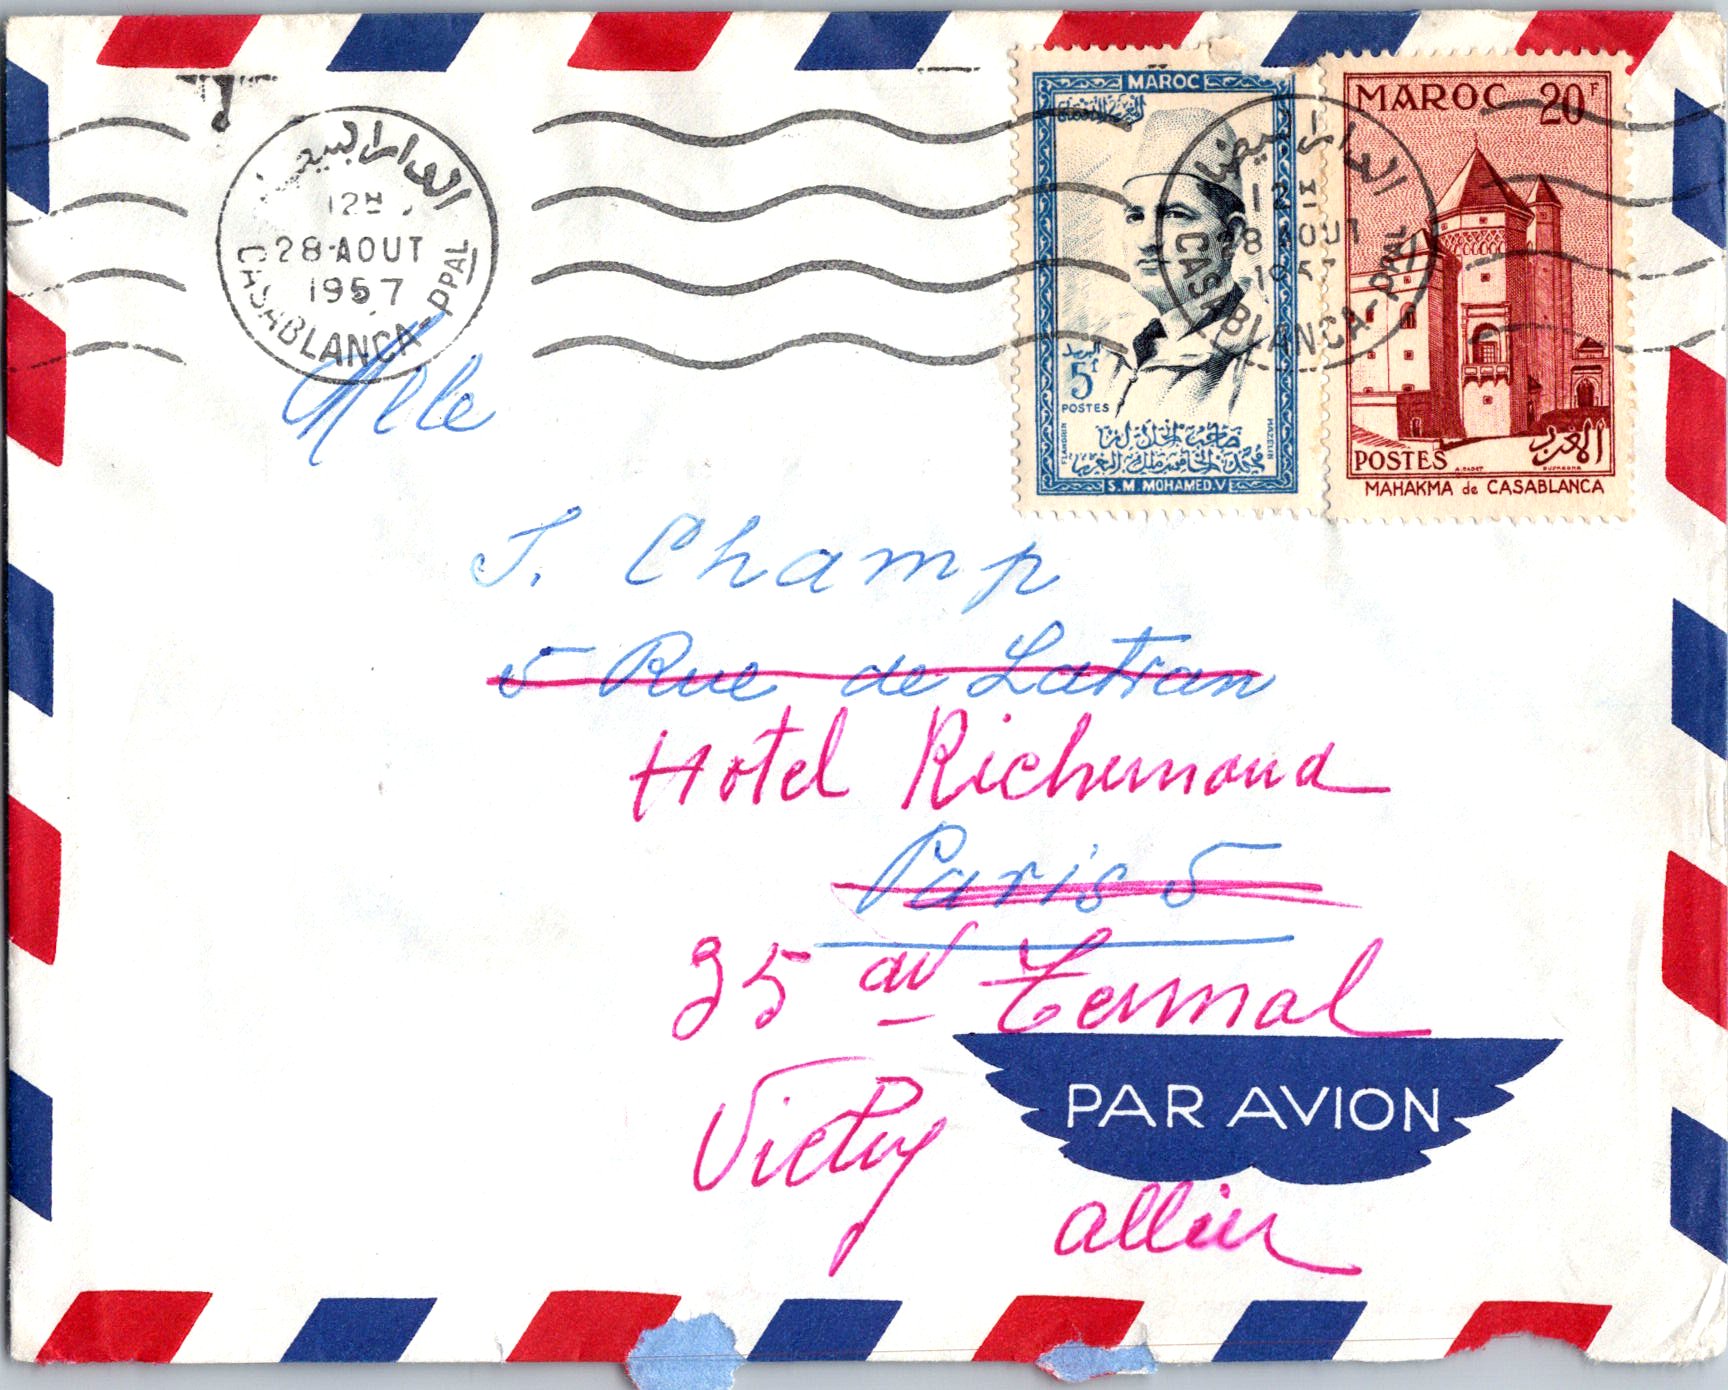 الدار البيضاء
12H
28-AOUT
1957
CASABLANCA-PPAL
MAROC
5f
البريد
POSTES
FLANDRIN
MAZELIN
صاحب الجلالة
محمد الخامس ملك المغرب
S.M. MOHAMED.V
MAROC 20F
POSTES المغرب
MAHAKMA de CASABLANCA
الدار البيضاء
12H
28 AOUT
1957
CASABLANCA-PPAL
Mlle
J. Champ
5 Rue de Latran
Hotel Richemond
Paris 5
35 av Termal
PAR AVION
Vichy
allier